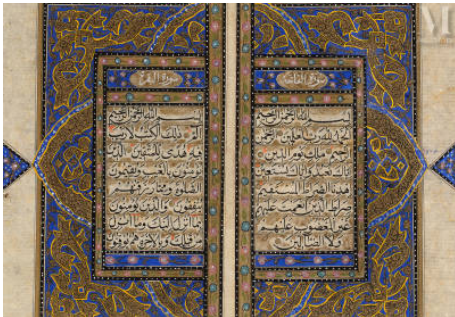 سورة الفاتحة
بسم الله الرحمن الرحيم
الحمد لله رب العلمين الرحمن
الرحيم ملك يوم الدين
اياك نعبد واياك نستعين
اهدنا الصراط المستقيم
صراط الذين انعمت عليهم
غير المغضوب عليهم
ولا الضالين
سورة البقرة
بسم الله الرحمن الرحيم
الم ذلك الكتاب لا ريب
فيه هدى للمتقين الذين
يؤمنون بالغيب ويقيمون
الصلوة ومما رزقنهم
ينفقون والذين يؤمنون
بما انزل اليك وما انزل
من قبلك وبالاخرة هم يوقنون